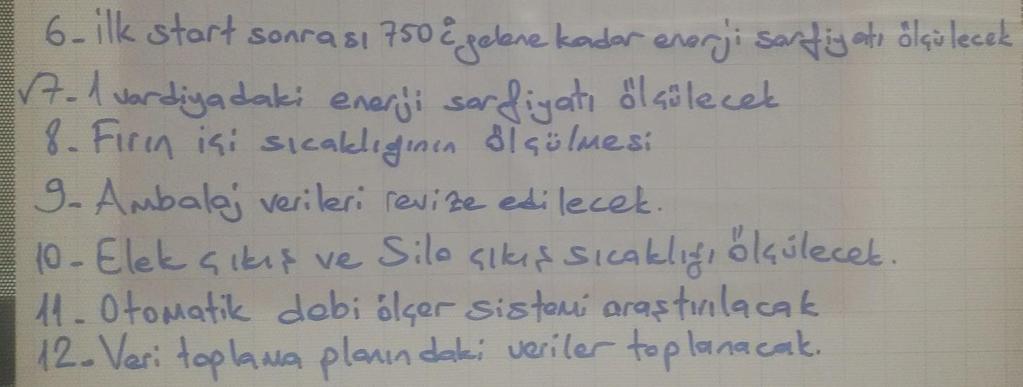 6- ilk start sonrası 750 °C gelene kadar enerji sarfiyatı ölçülecek
√7- 1 vardiyadaki enerji sarfiyatı ölçülecek
8- Fırın içi sıcaklığının ölçülmesi
9- Ambalaj verileri revize edilecek.
10- Elek çıkış ve Silo çıkış sıcaklığı ölçülecek.
11- Otomatik debi ölçer sistemi araştırılacak
12- Veri toplama planındaki veriler toplanacak.